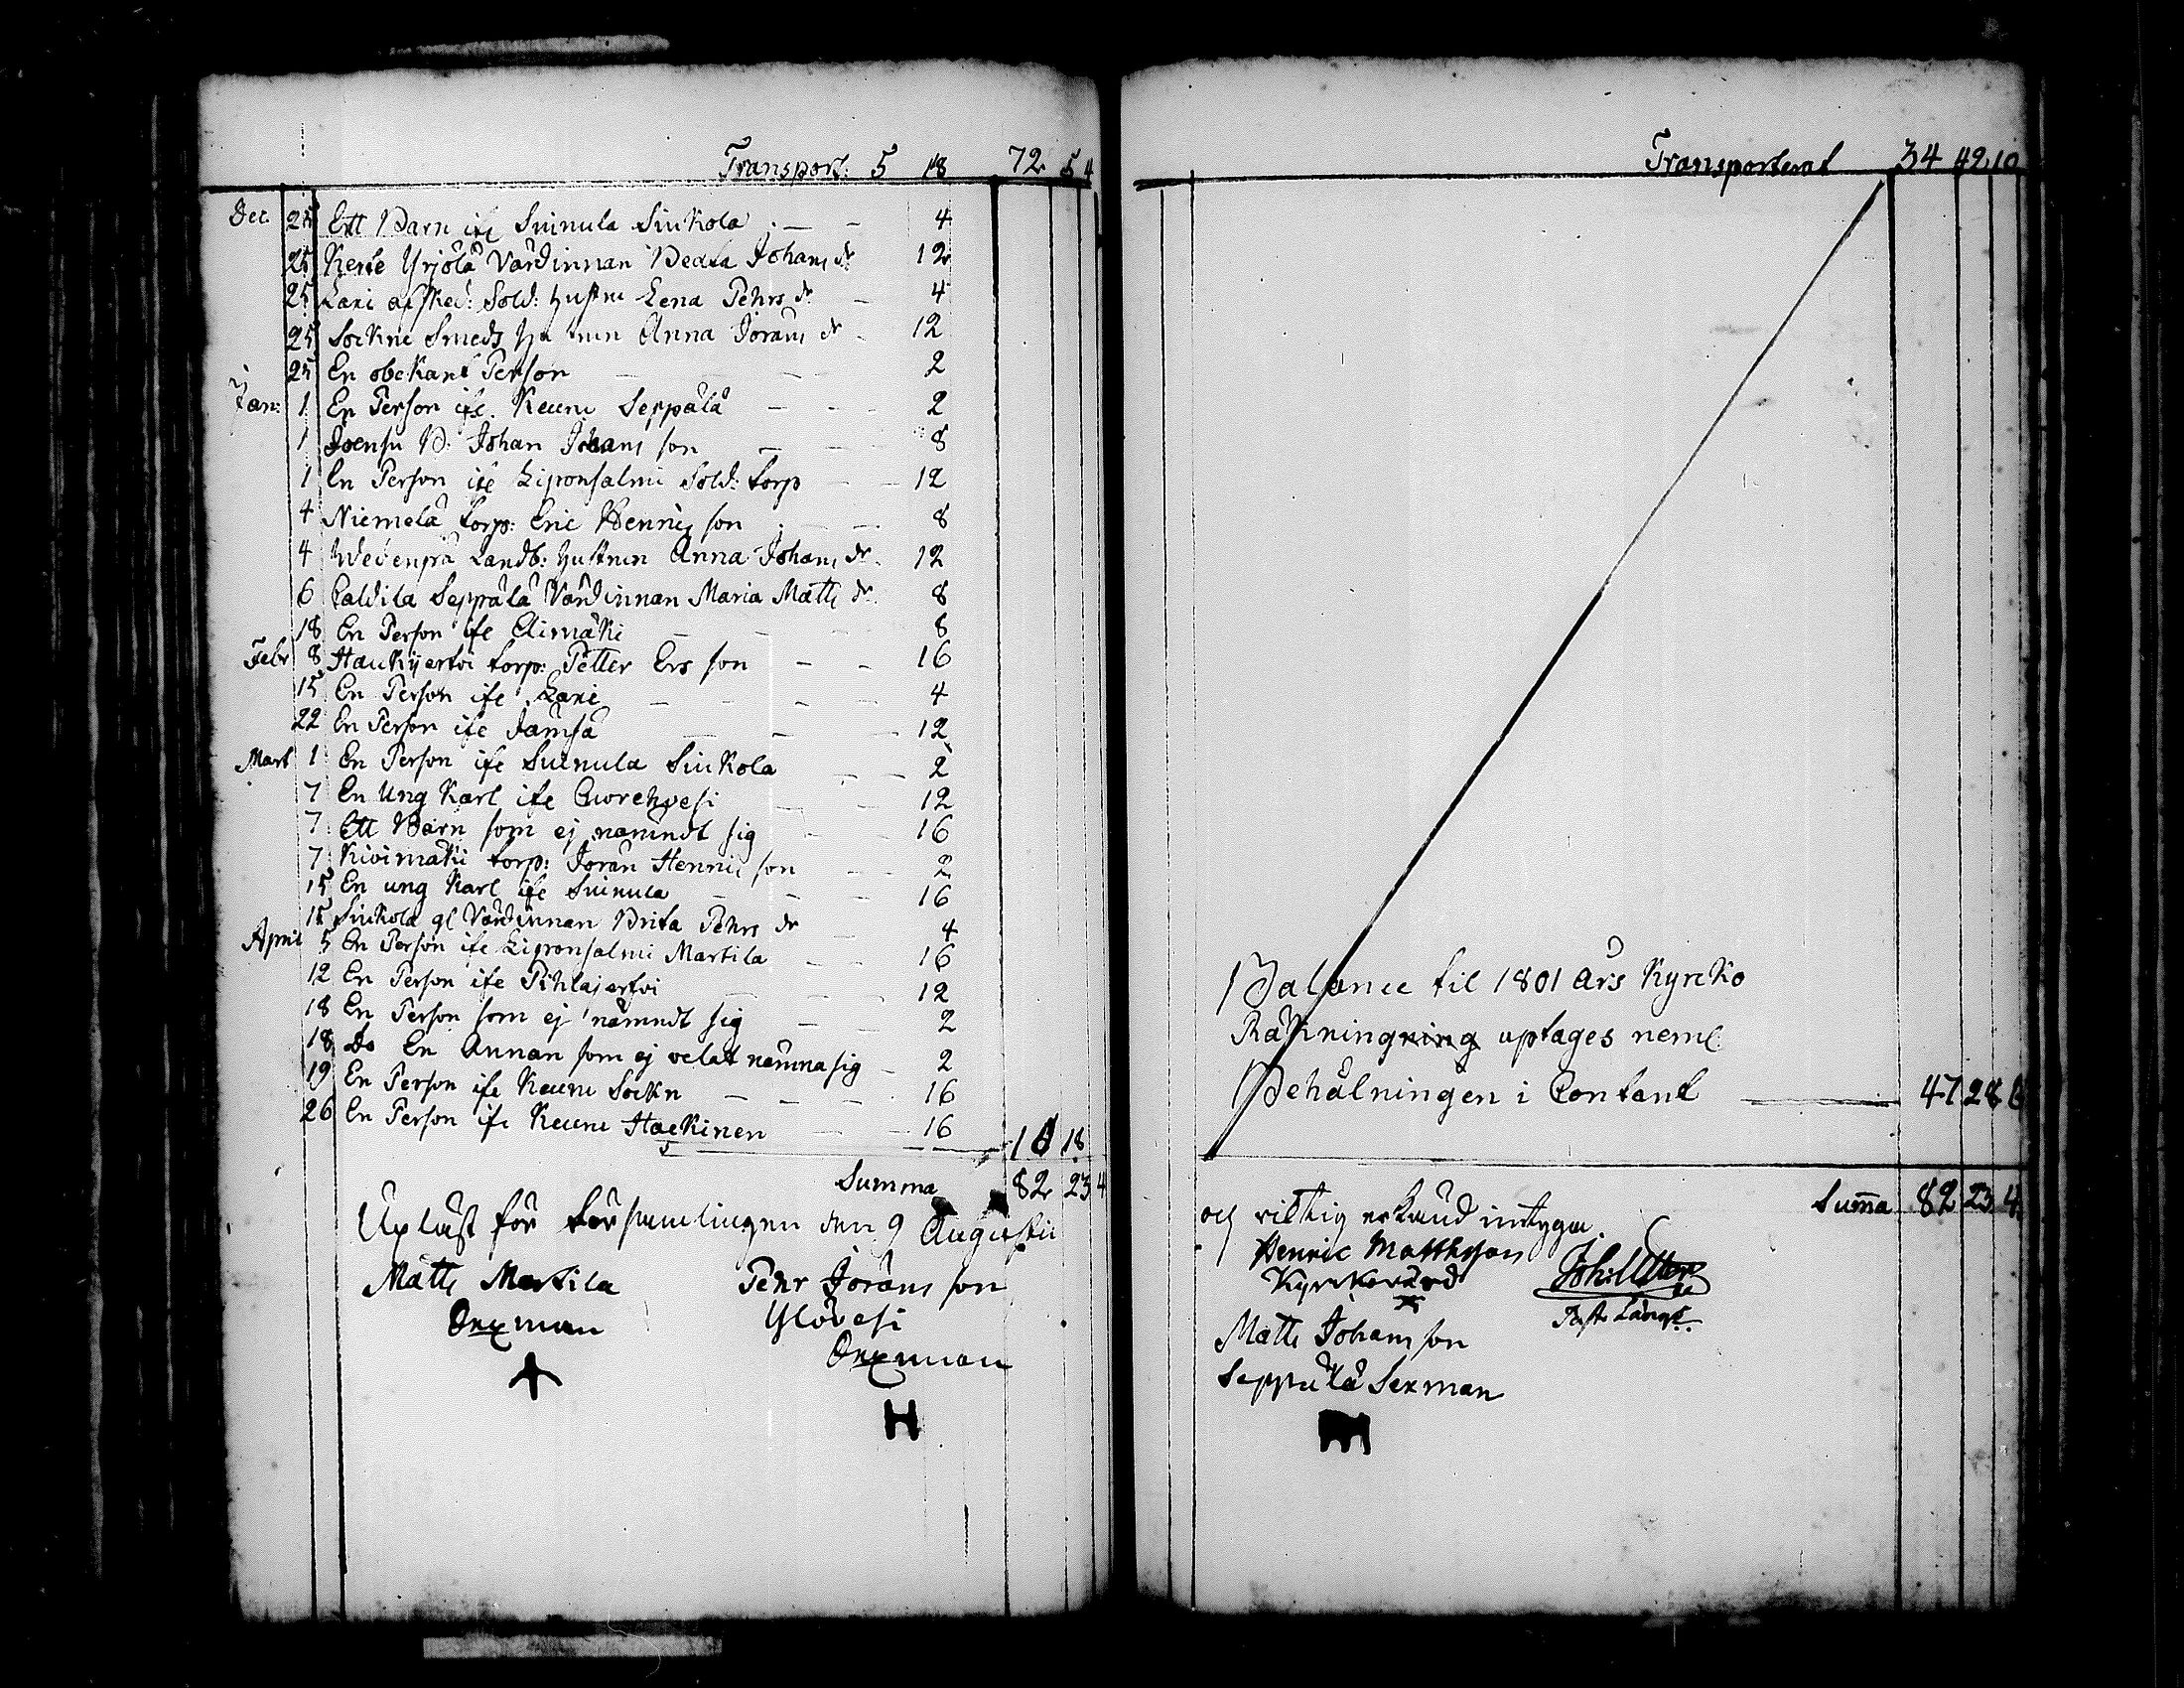 Transport: 5 18 72 5 4
Dec 25 Ett Barn ifr Suinula Siukola 4
25 Kerte Yrjölä Värdinnan Beata Johans dr 12
25 Lari afsked: Sold: hustru Lena Pehrs dr 4
25 Sockne Smeds hustrun Anna Jörans dr 12
25 En obekant Person 2
Jan: 1 En Person ifr Keuru Seppälä 2
1 Joensu B: Johan Johans son 8
1 En Person ifr Liponsalmi Sold: torp 12
4 Niemelä torp: Eric Henrics son 8
4 Landb: hustrun Anna Johans dr 12
6 Caldila Seppälä Värdinnan Maria Matts dr 8
18 En Person ifr Aimäki 8
Febr 8 Haukijerfvi torp: Petter Ers son 16
15 En Person ifr Lari 4
22 En Person ifr Jämsä 12
Mart 1 En Person ifr Suinula Siukola 2
7 En Ung Karl ifr 12
7 Ett Barn som ej nämndt sig 16
7 Kivimäki torp: Jöran Henrics son 2
15 En ung Karl ifr Suinula 16
15 Siukola gl Värdinnan Brita Pehrs dr 4
April 5 En Person ifr Liponsalmi Martila 16
12 En Person ifr Pihlajerfvi 12
18 En Person som ej nämndt sig 2
18 Do En Annan som ej velat nämna sig 2
19 En Person ifr Keuru Sockn 16
26 En Person ifr Keuru Hackinen 16
10 18
Summa 82 23 4
Upläst för församlingen den 9 Augusti
Matts Martila Pehr Jörans son
Sexman Ylövesi
Sexman
H
Transporterat 34 42 10
Balance til 1801 års Kyrcko
Räkningning uptages neml:
Behålningen i Contant 47 28 6
Summa 82 23 4
och riktig erkänd intygar
Henric Matthsson
Kyrkovärd
Matts Johans son
Seppälä Sexman